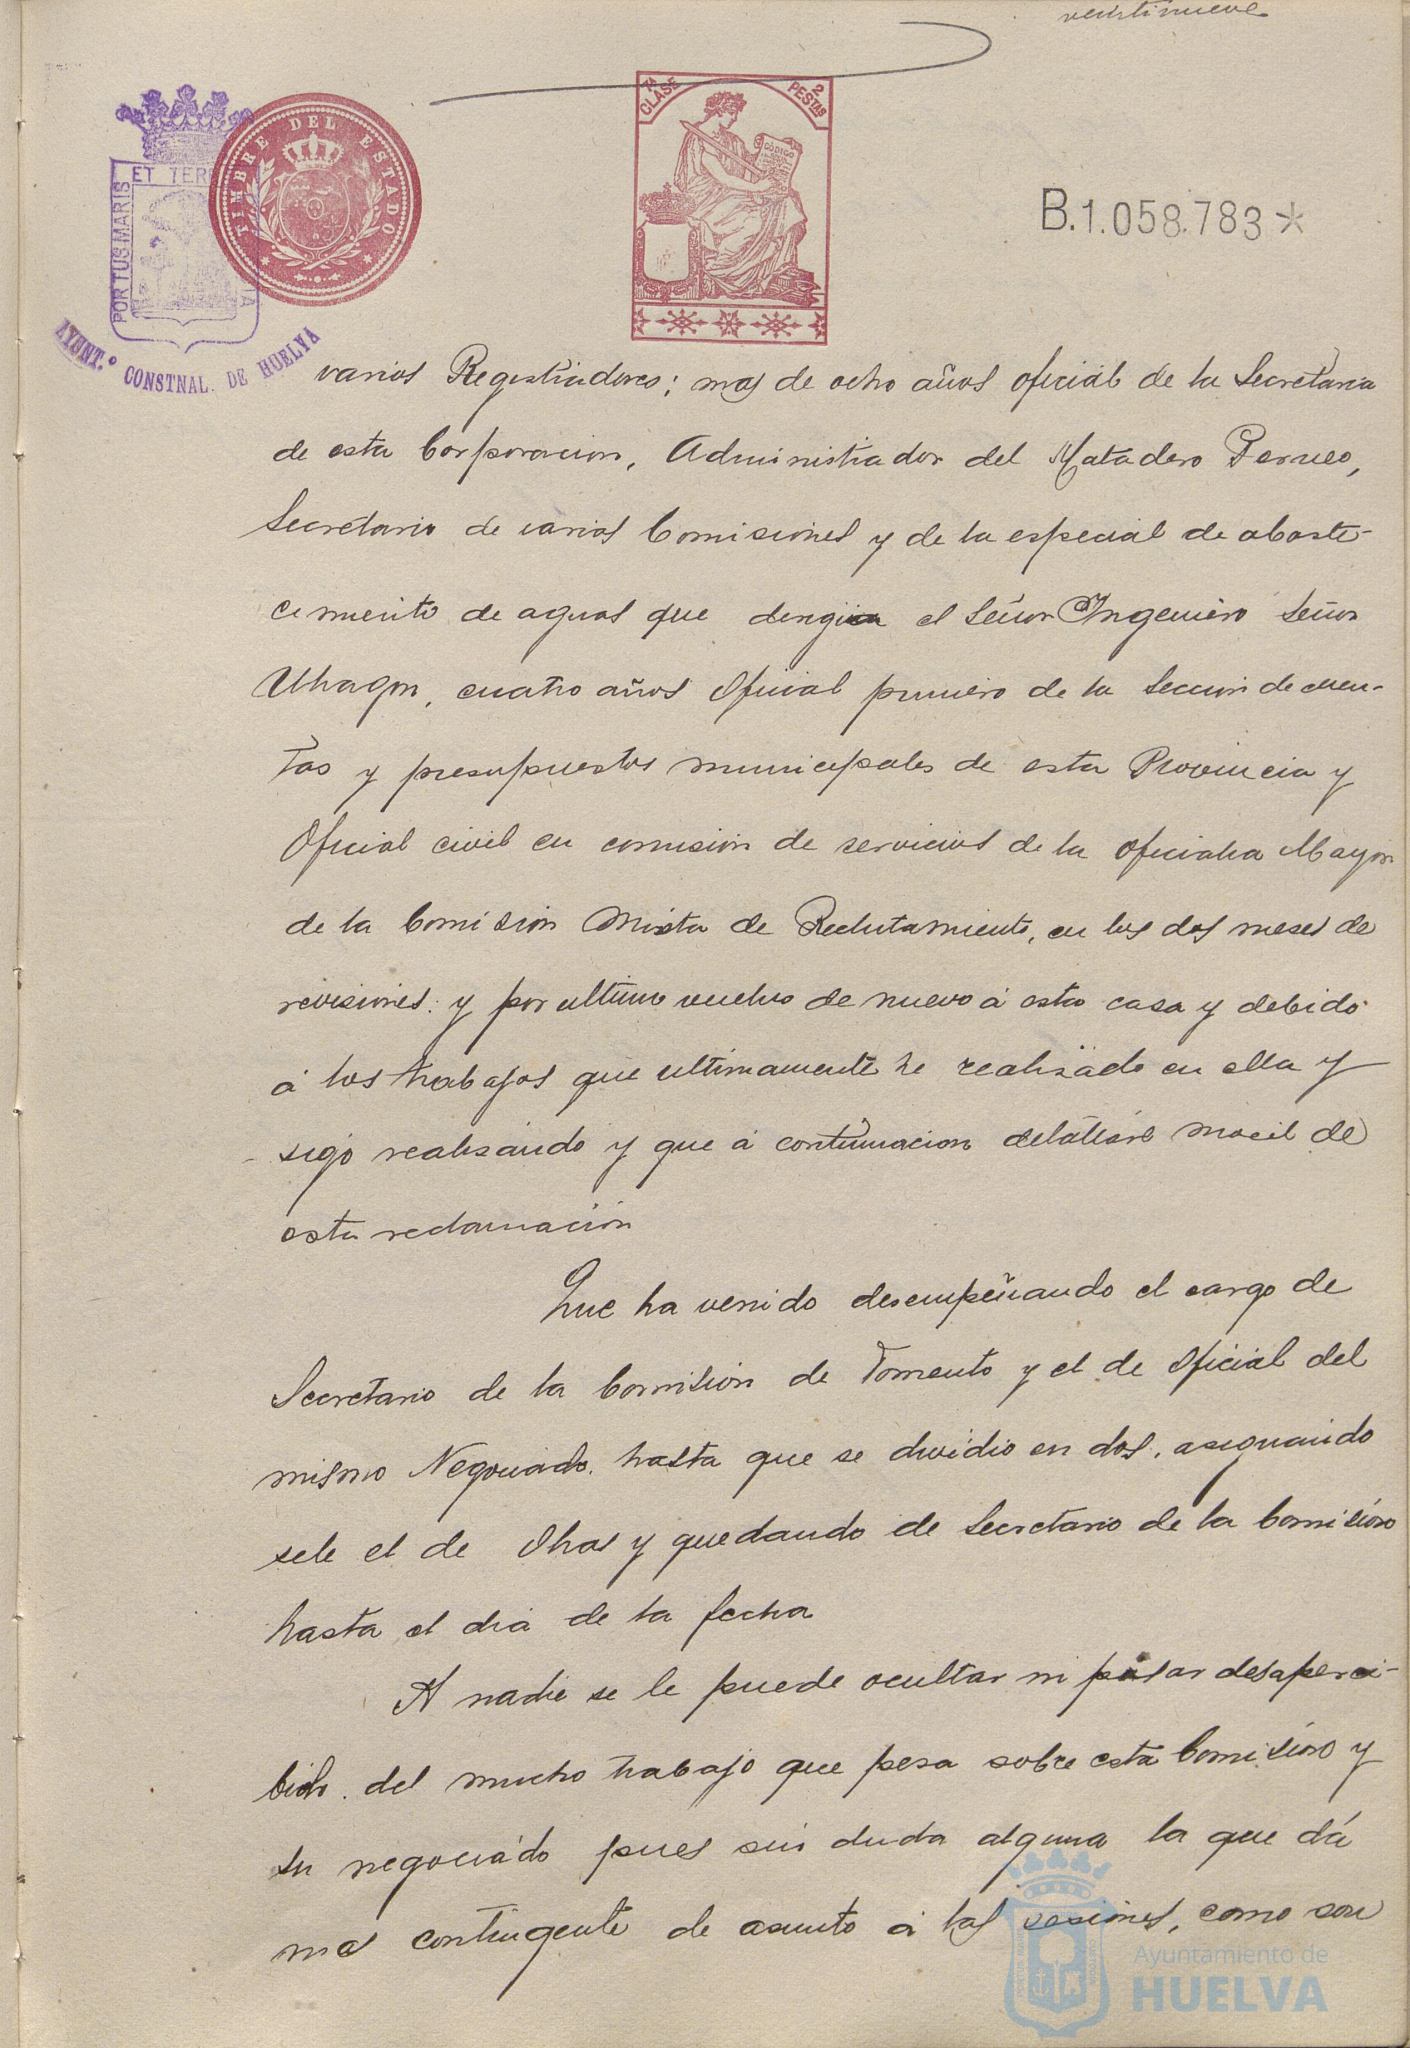 veintinueve
7ª CLASE
2 PESTAS
CÓDIGO
TIMBRE DEL ESTADO
PORTUS MARIS ET TERR IA
AYUNT.º CONSTNAL. DE HUELVA
B.1.058.783*
varios Registradores; mas de ocho años oficial de la Secretaria
de esta Corporacion, Administrador del Matadero Perneo,
Secretario de varias Comisiones y de la especial de abaste-
cimiento de aguas que dirigia el Señor Ingeniero Señor
Uhagon, cuatro años Oficial primero de la Seccion de cuen-
tas y presupuestos municipales de esta Provincia y
Oficial civil en comision de servicios de la oficialia Mayor
de la Comision Mixta de Reclutamiento, en los dos meses de
revisiones: y por ultimo vuelvo de nuevo á esta casa y debido
á los trabajos que ultimamente he realizado en ella y
sigo realizando y que á continuacion detallaré movil de
esta reclamacion
Que ha venido desempeñando el cargo de
Secretario de la Comision de Fomento y el de Oficial del
mismo Negociado, hasta que se dividio en dos, asignando
sele el de Obras y quedando de Secretario de la Comision
hasta el dia de la fecha
A nadie se le puede ocultar ni pasar desaperci-
bido del mucho trabajo que pesa sobre esta Comision y
su negociado pues sin duda alguna la que dá
mas contingente de asunto á las sesiones, como son
Ayuntamiento de
HUELVA